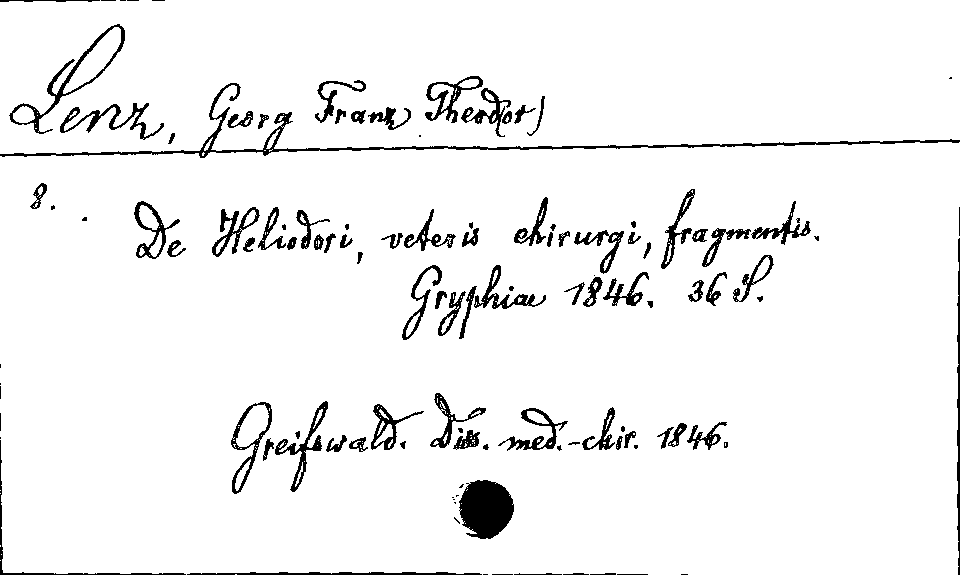 Lenz, Georg Franz Theod(or)
8.
De Heliodori, veteris chirurgi, fragmentis.
Gryphiae 1846. 36 S.
Greifswald. Diss. med.-chir. 1846.